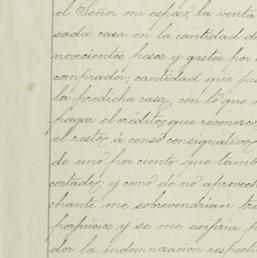 el Señor mi esposo, la venta
sada casa en la cantidad de
novecientos pesos y gastos por
comprador; cantidad que
la predicha casa, con lo que
pagar el crédito, que reconozco
el resto, á censo consignativo,
de uno por ciento que tam
certado; y como de no aprovech
chante me sobrevendrían tr
perjuicio y se me exijiría
dor la indemnizacion respecti